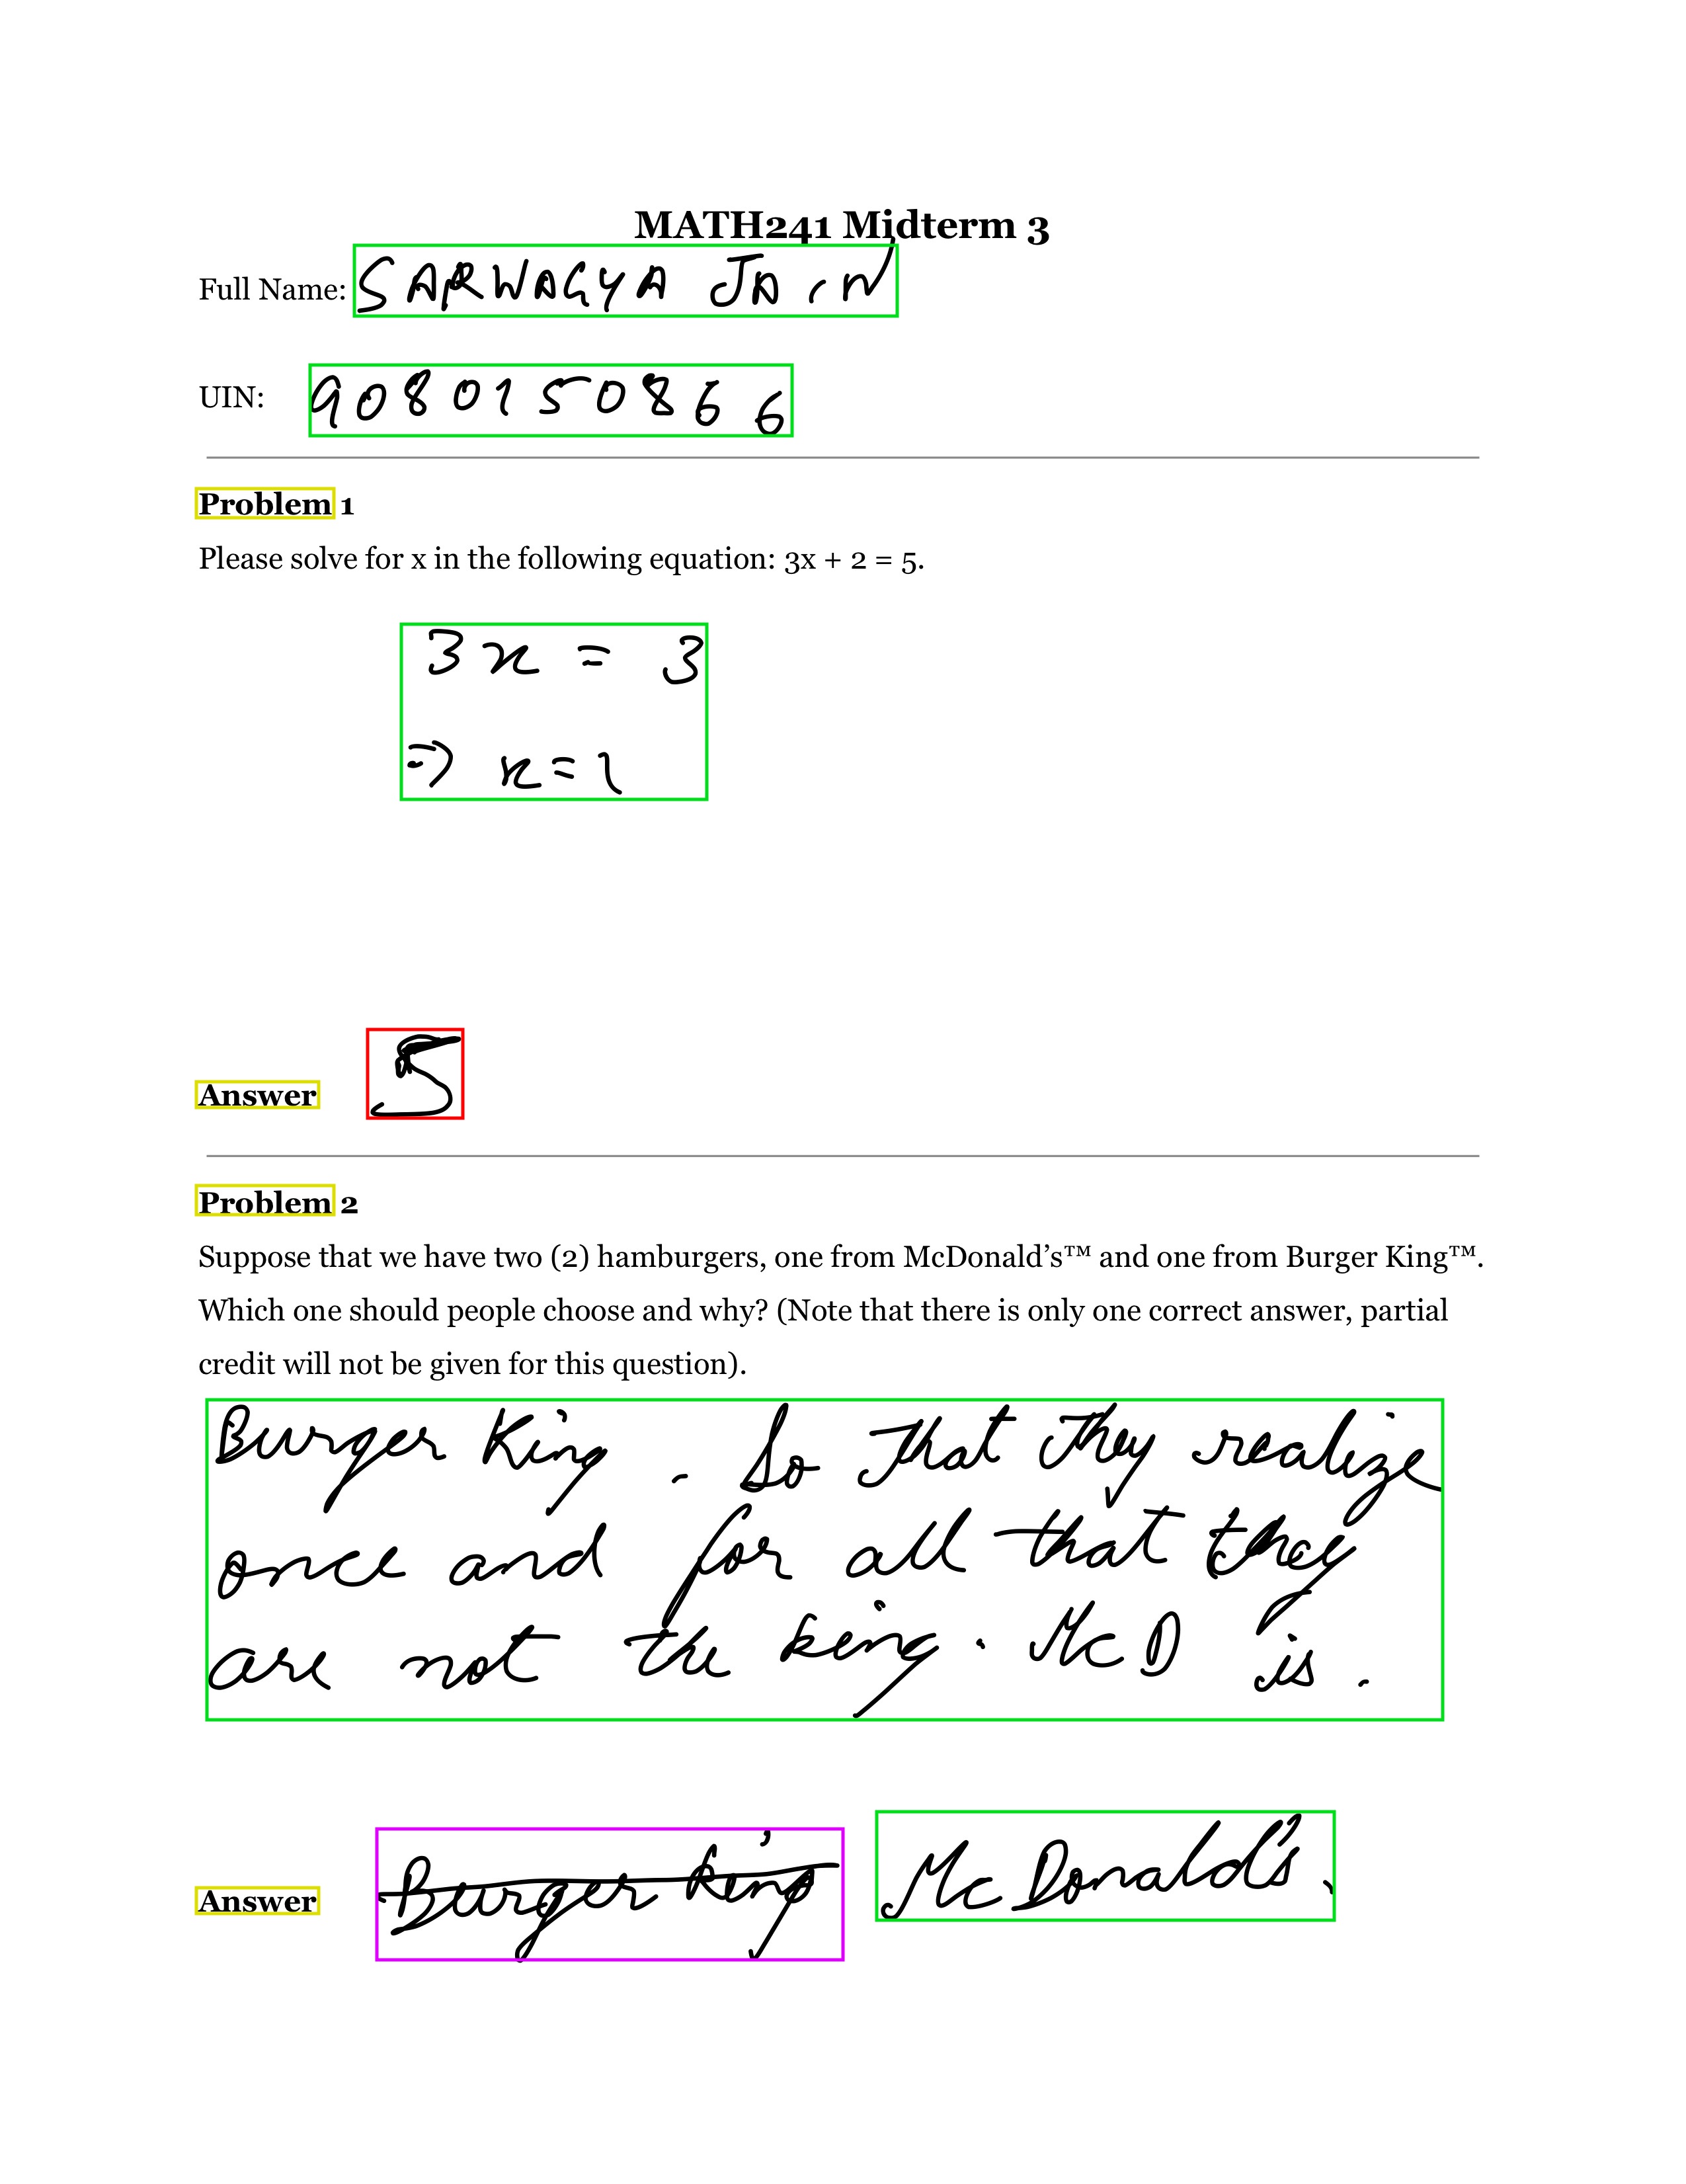 MATH241 Midterm 3
Full Name: SARWAGYA JAIN
UIN: 9080150866
Problem 1
Please solve for x in the following equation: 3x + 2 = 5.
3x = 3
⇒ x = 1
Answer 5
Problem 2
Suppose that we have two (2) hamburgers, one from McDonald’s™ and one from Burger King™.
Which one should people choose and why? (Note that there is only one correct answer, partial
credit will not be given for this question).
Burger King. So that they realize
once and for all that they
are not the king. McD is.
Answer Burger King McDonald's.